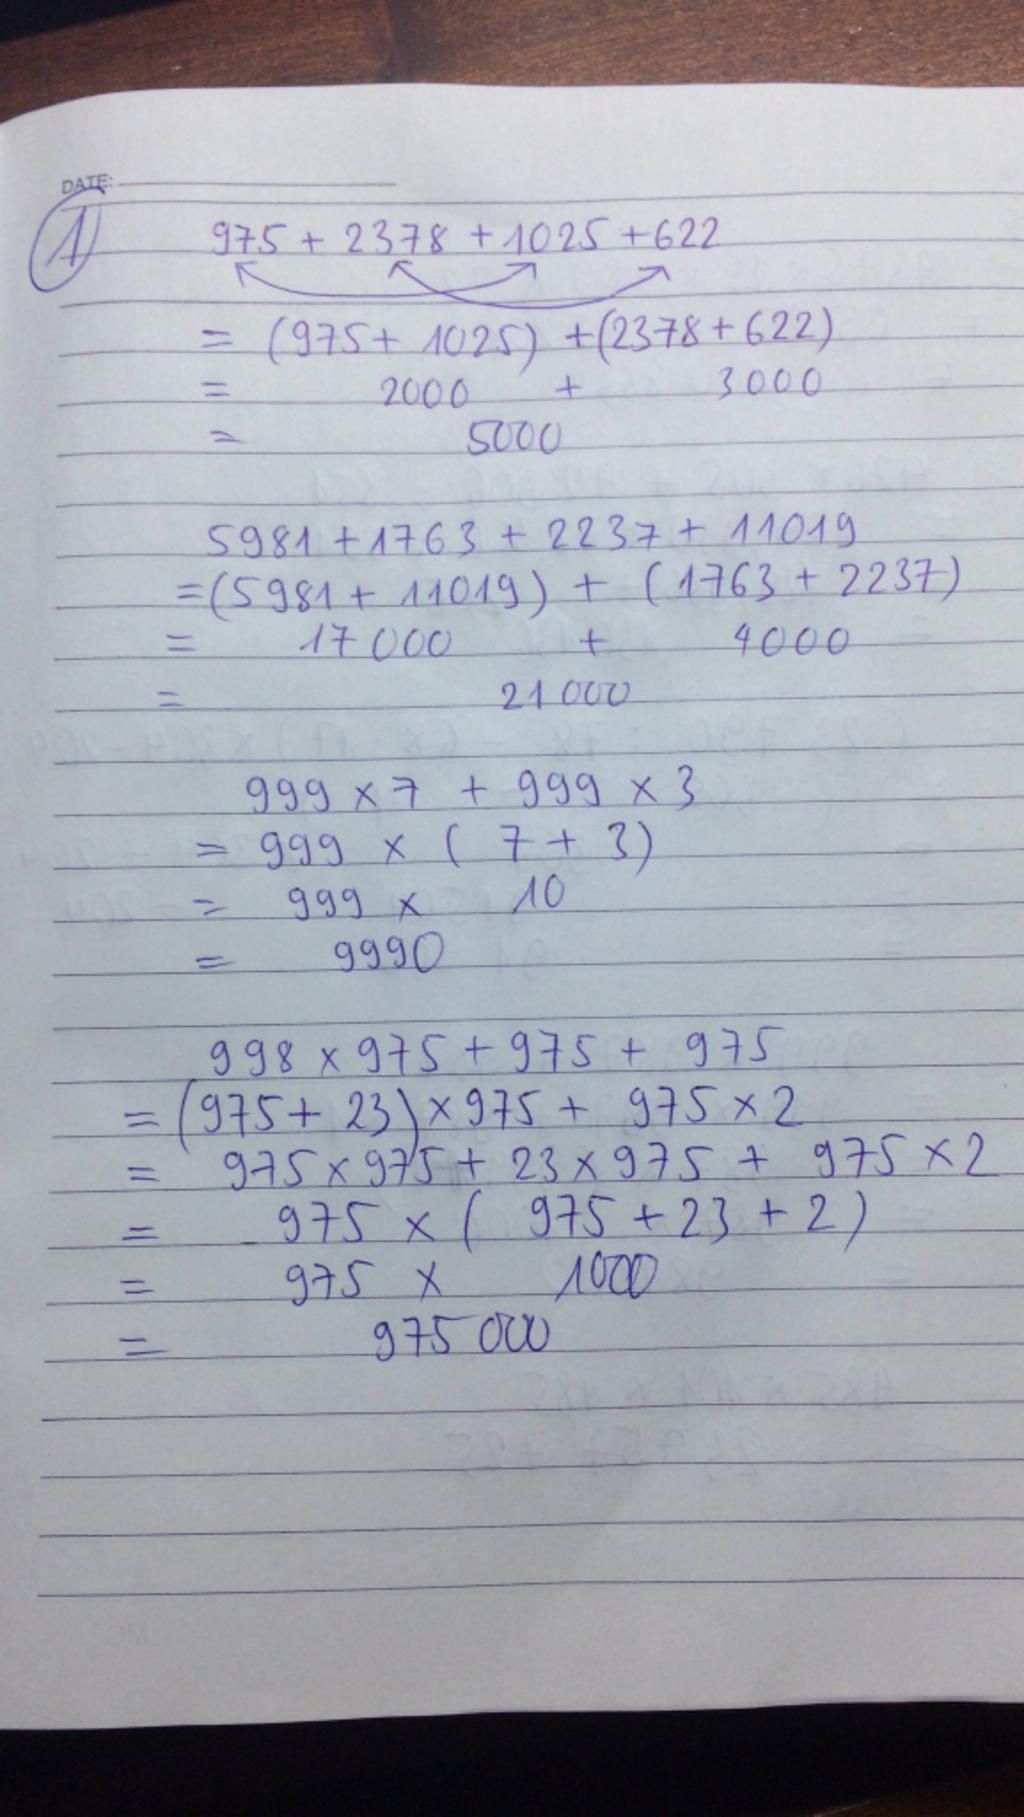 DATE:
1
975 + 2378 + 1025 + 622
= (975 + 1025) + (2378 + 622)
= 2000 + 3000
= 5000
5981 + 1763 + 2237 + 11019
= (5981 + 11019) + (1763 + 2237)
= 17 000 + 4000
= 21 000
999 × 7 + 999 × 3
= 999 × ( 7 + 3)
= 999 × 10
= 9990
998 × 975 + 975 + 975
= (975 + 23) × 975 + 975 × 2
= 975 × 975 + 23 × 975 + 975 × 2
= 975 × ( 975 + 23 + 2)
= 975 × 1000
= 975 000